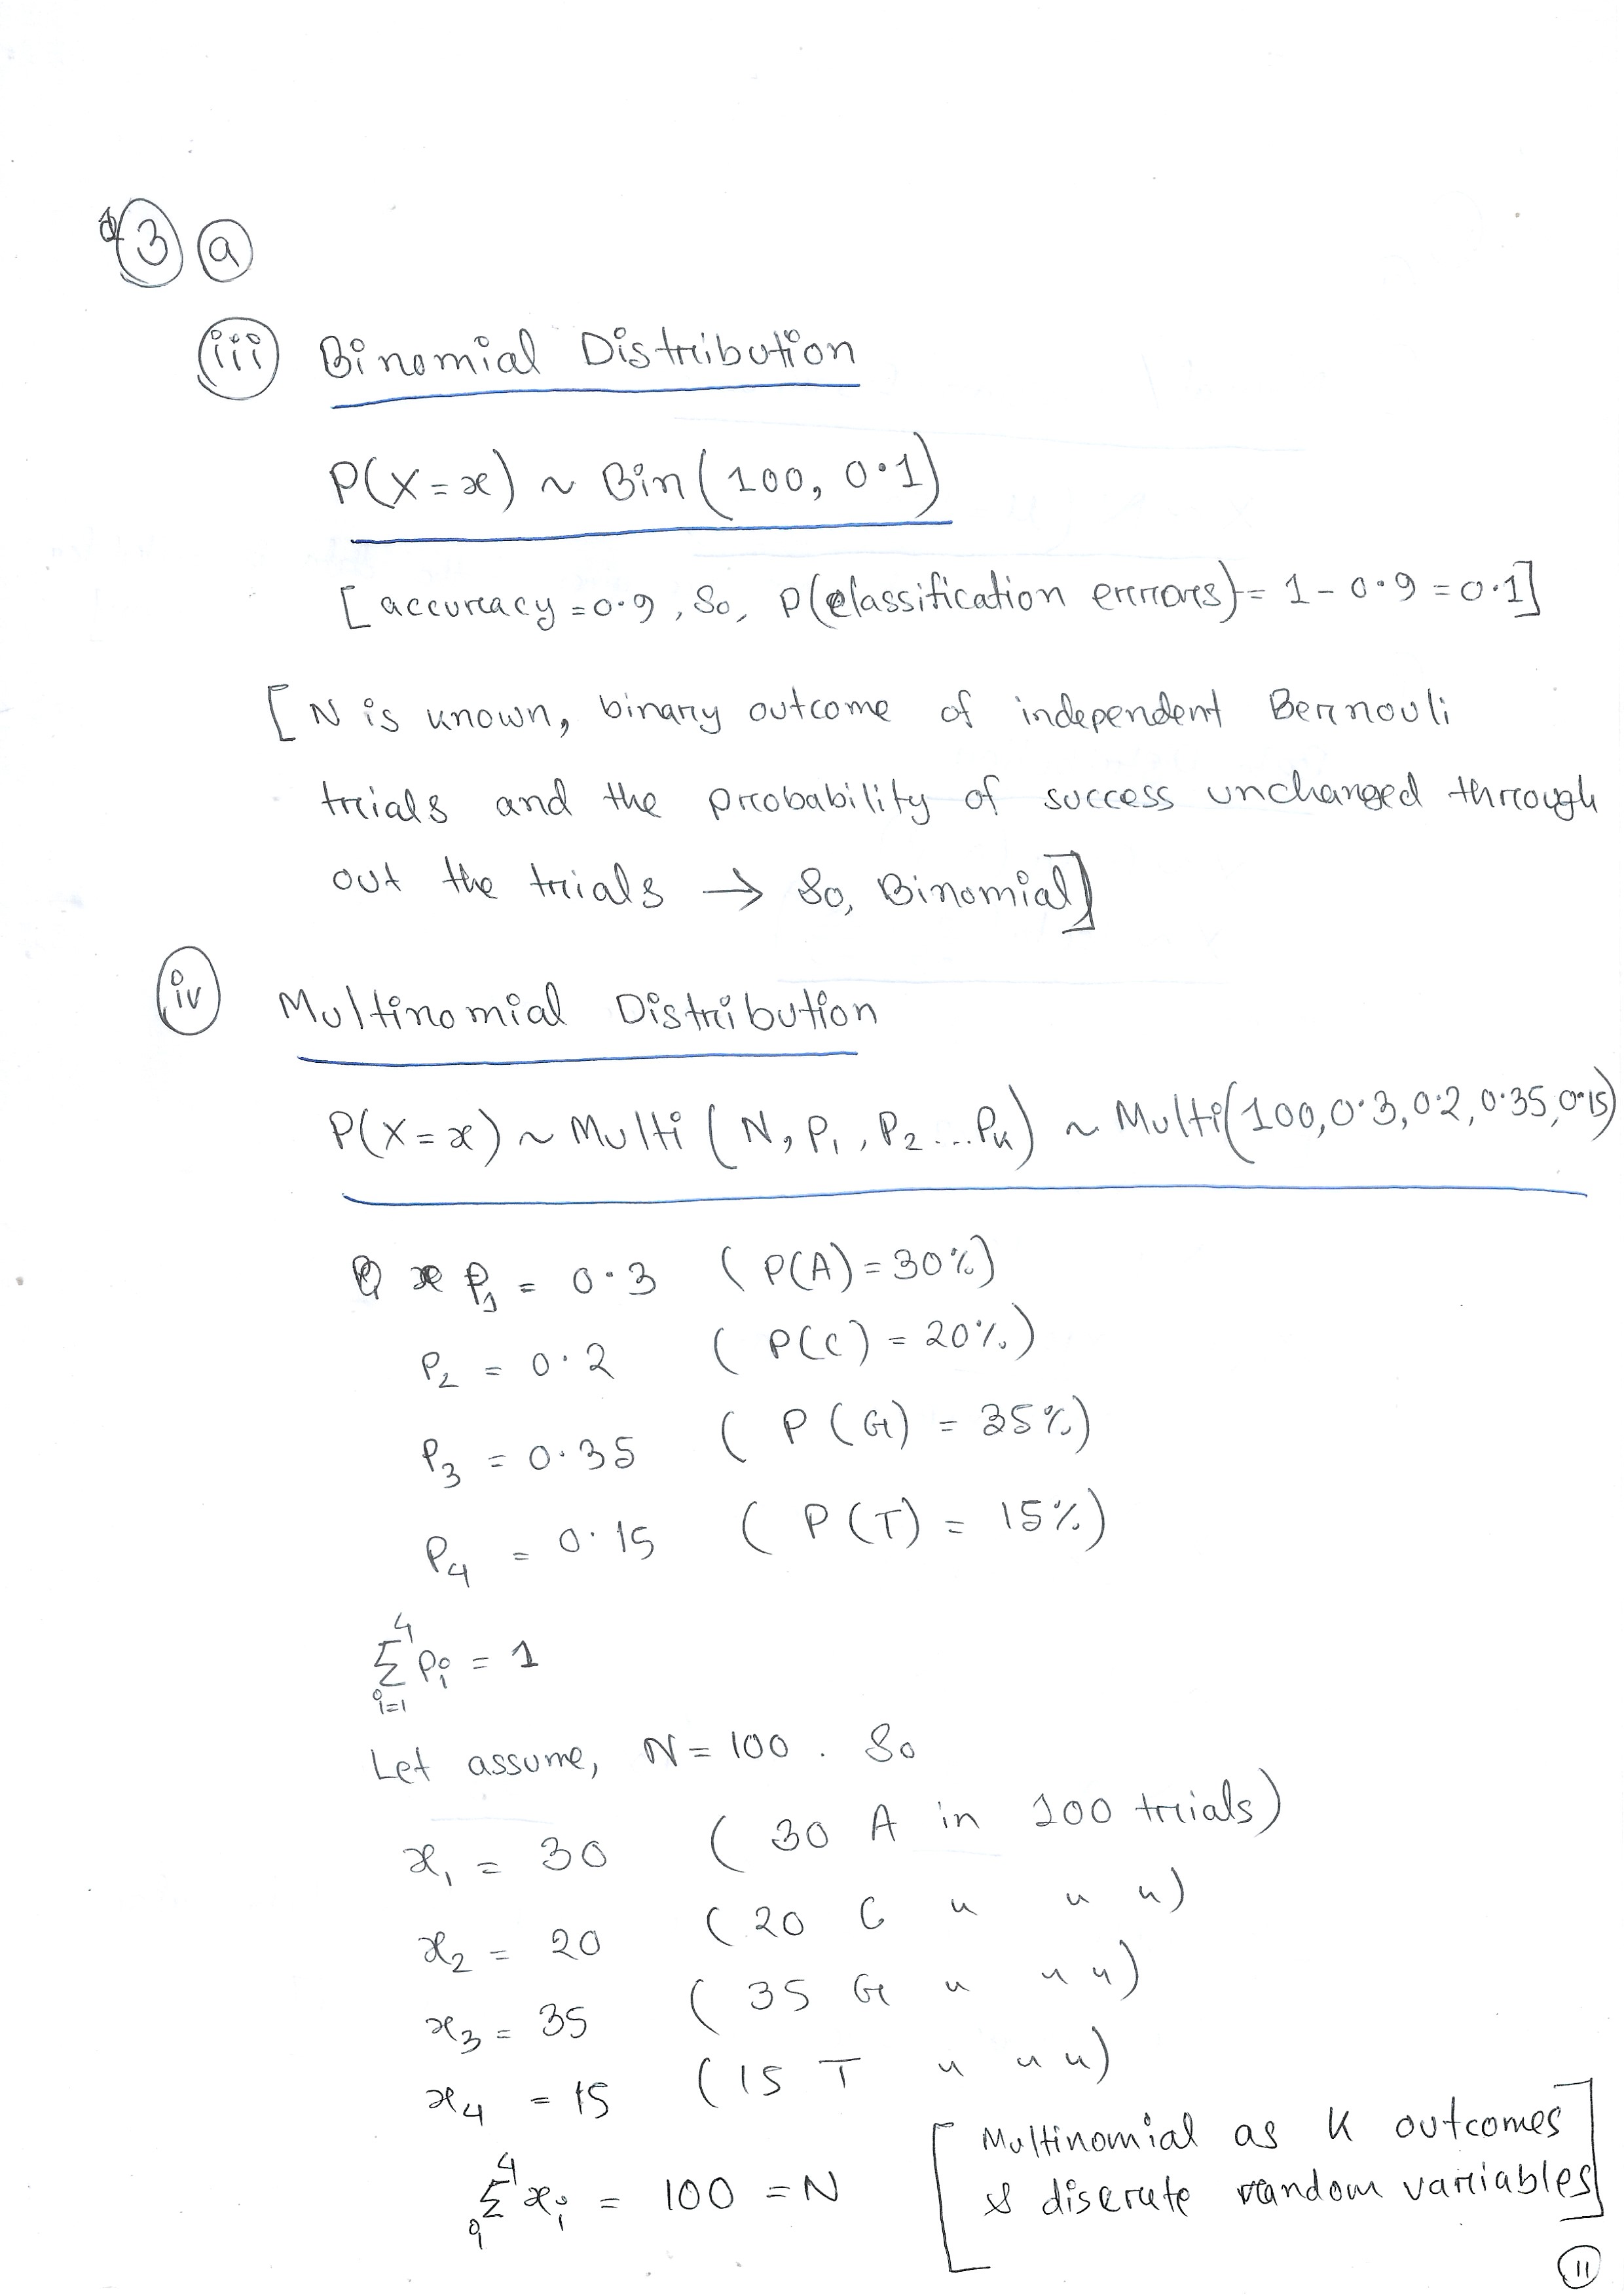 3 a
iii Binomial Distribution
P(X=x) ~ Bin(100, 0.1)
[accuracy = 0.9, So, P(classification errors) = 1 - 0.9 = 0.1]
[N is known, binary outcome of independent Bernouli
trials and the probability of success unchanged through
out the trials → So, Binomial]
iv Multinomial Distribution
P(X=x) ~ Multi (N, P₁, P₂ ... Pₖ) ~ Multi(100, 0.3, 0.2, 0.35, 0.15)
P₁ = 0.3 (P(A) = 30%)
P₂ = 0.2 (P(C) = 20%)
P₃ = 0.35 (P(G) = 35%)
P₄ = 0.15 (P(T) = 15%)
4
Σ Pᵢ = 1
i=1
Let assume, N = 100 . So
x₁ = 30 (30 A in 100 trials)
x₂ = 20 (20 C " " ")
x₃ = 35 (35 G " " ")
x₄ = 15 (15 T " " ")
4
Σ xᵢ = 100 = N
i
[Multinomial as K outcomes
& discrete random variables]
11